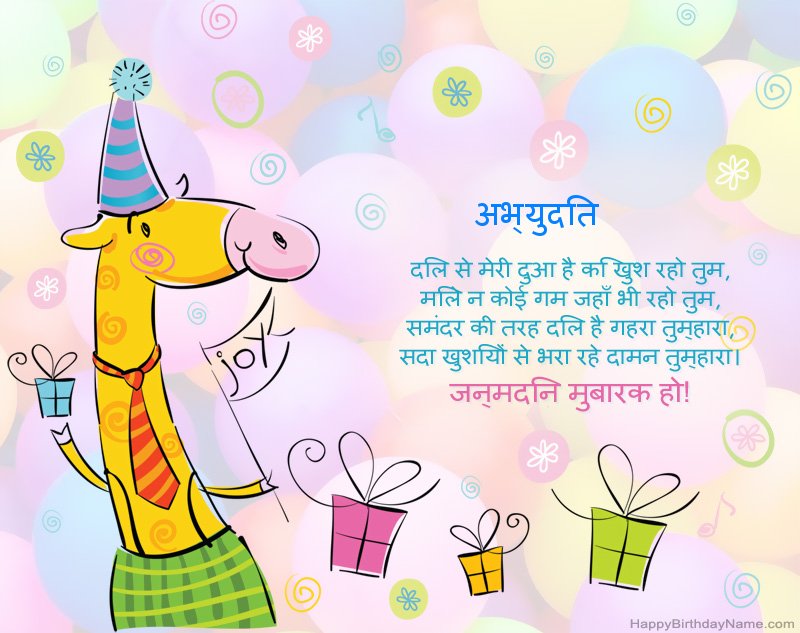 अभ्युदति
दलि से मेरी दुआ है कि खुश रहो तुम,
मलिे न कोई गम जहाँ भी रहो तुम,
समंदर की तरह दलि है गहरा तुम्हारा,
सदा खुशयिों से भरा रहे दामन तुम्हारा।
जन्मदनि मुबारक हो!
joy
HappyBirthdayName.com